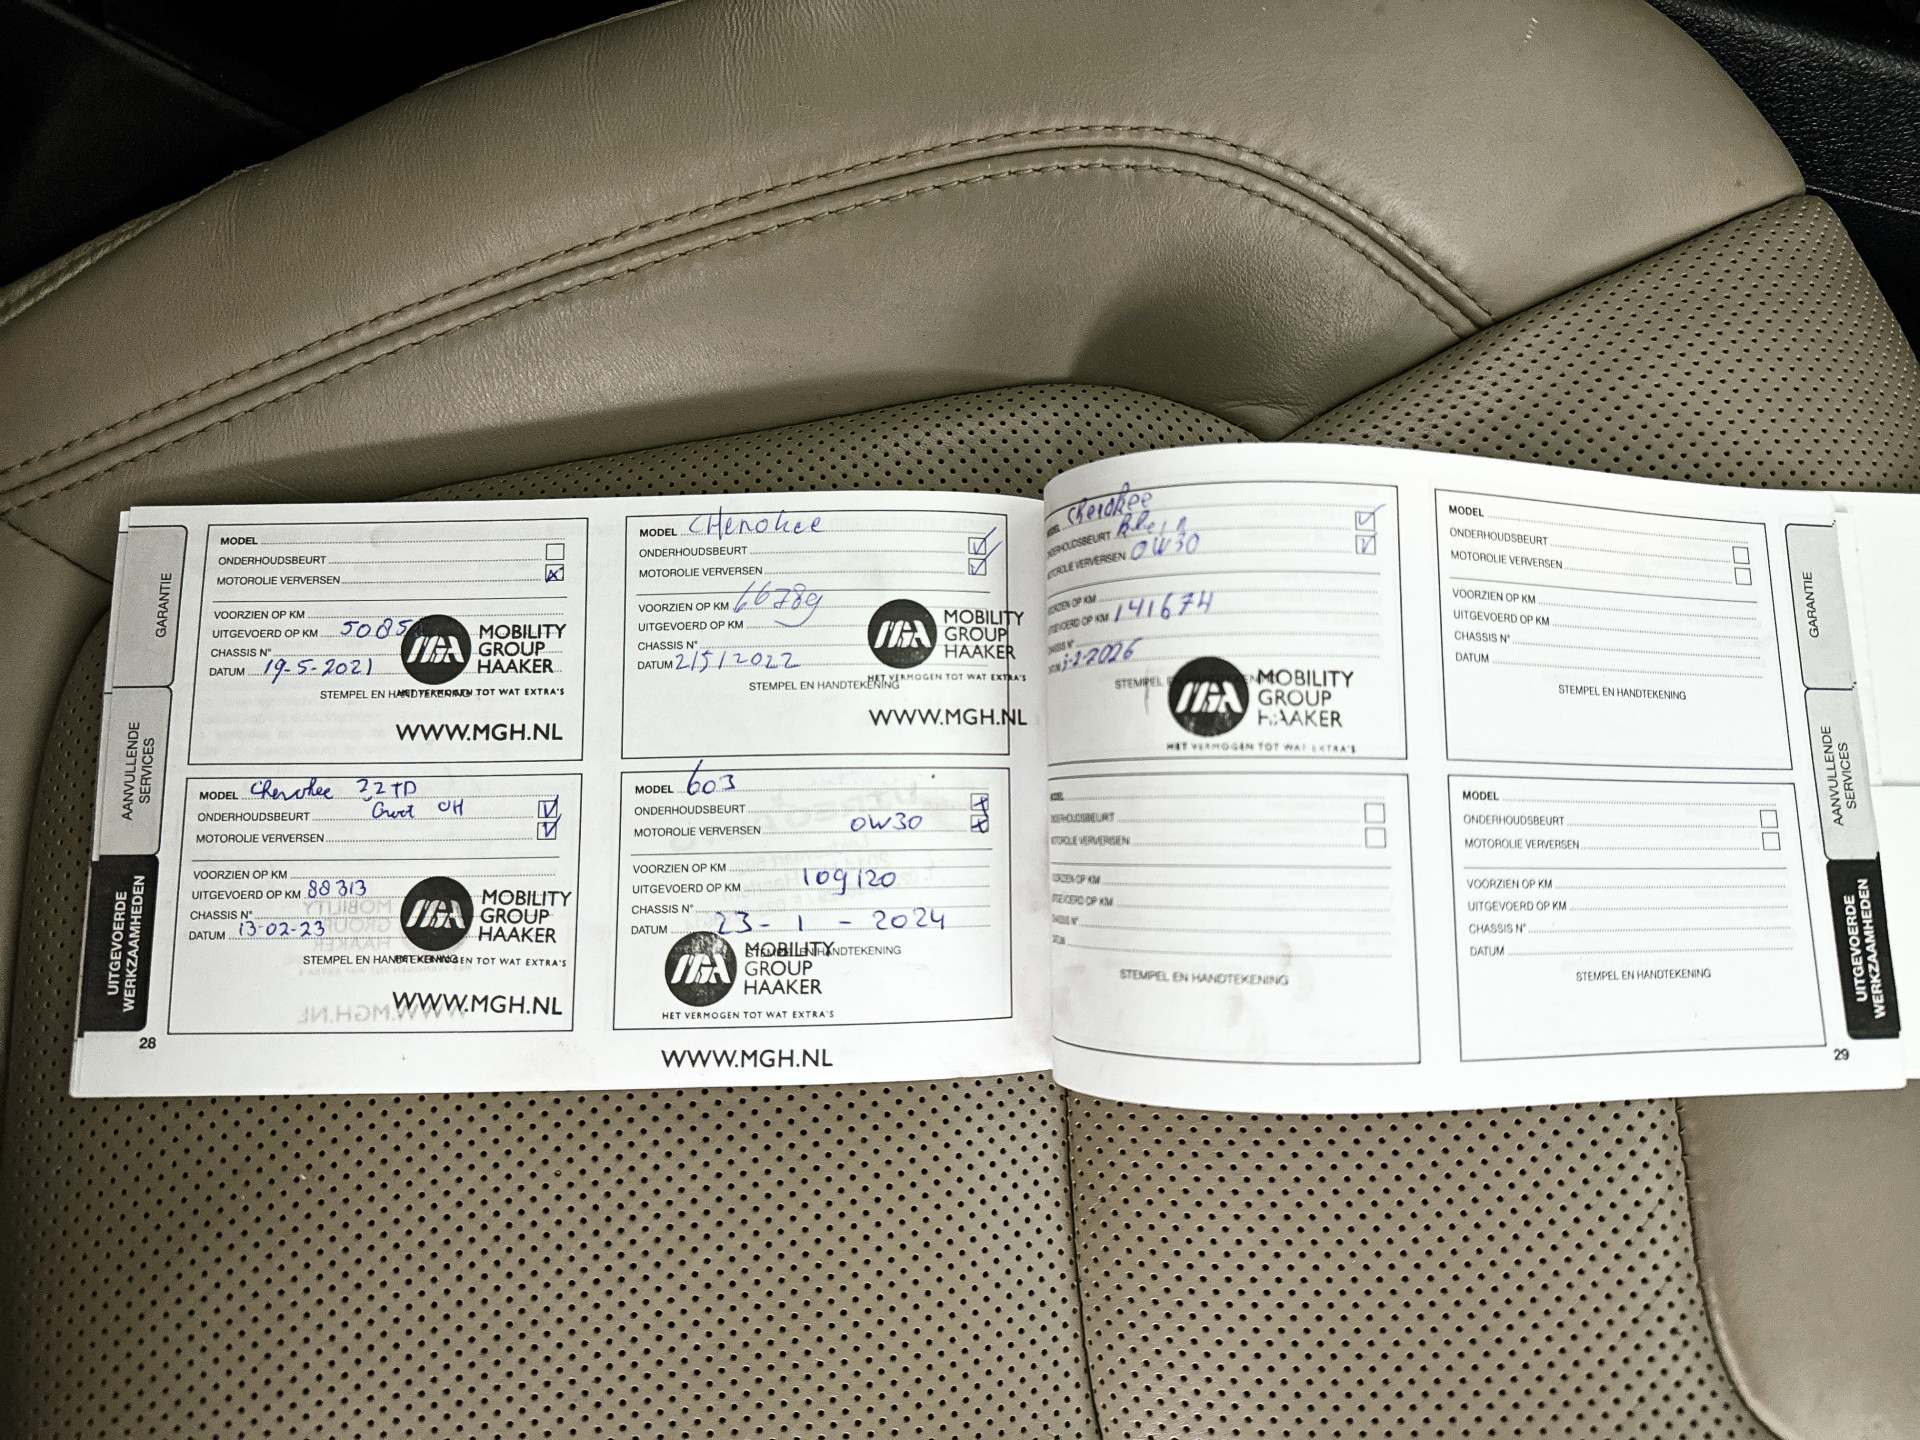 GARANTIE
AANVULLENDE
SERVICES
UITGEVOERDE
WERKZAAMHEDEN
MODEL
ONDERHOUDSBEURT
MOTOROLIE VERVERSEN
VOORZIEN OP KM
UITGEVOERD OP KM
CHASSIS N°
DATUM 19-5-2021
STEMPEL EN HANDTEKENING
MOBILITY
GROUP
HAAKER
HET VERMOGEN TOT WAT EXTRA'S
WWW.MGH.NL
MODEL CHerokee
ONDERHOUDSBEURT
MOTOROLIE VERVERSEN
VOORZIEN OP KM 66789
UITGEVOERD OP KM
CHASSIS N°
DATUM 2/5/2022
STEMPEL EN HANDTEKENING
MOBILITY
GROUP
HAAKER
HET VERMOGEN TOT WAT EXTRA'S
WWW.MGH.NL
MODEL Cherokee 22TD
ONDERHOUDSBEURT Groot OH
MOTOROLIE VERVERSEN
VOORZIEN OP KM
UITGEVOERD OP KM 88313
CHASSIS N°
DATUM 13-02-23
STEMPEL EN HANDTEKENING
MOBILITY
GROUP
HAAKER
HET VERMOGEN TOT WAT EXTRA'S
WWW.MGH.NL
28
MODEL 603
ONDERHOUDSBEURT
MOTOROLIE VERVERSEN 0W30
VOORZIEN OP KM
UITGEVOERD OP KM 109120
CHASSIS N°
DATUM 23-1-2024
STEMPEL EN HANDTEKENING
MOBILITY
GROUP
HAAKER
HET VERMOGEN TOT WAT EXTRA'S
WWW.MGH.NL
Cherokee
ONDERHOUDSBEURT
MOTOROLIE VERVERSEN 0W30
VOORZIEN OP KM
UITGEVOERD OP KM 141674
CHASSIS N°
2-2026
STEMPEL EN HANDTEKENING
MOBILITY
GROUP
HAAKER
HET VERMOGEN TOT WAT EXTRA'S
MODEL
ONDERHOUDSBEURT
MOTOROLIE VERVERSEN
VOORZIEN OP KM
UITGEVOERD OP KM
CHASSIS N°
DATUM
STEMPEL EN HANDTEKENING
MODEL
ONDERHOUDSBEURT
MOTOROLIE VERVERSEN
VOORZIEN OP KM
UITGEVOERD OP KM
CHASSIS N°
DATUM
STEMPEL EN HANDTEKENING
MODEL
ONDERHOUDSBEURT
MOTOROLIE VERVERSEN
VOORZIEN OP KM
UITGEVOERD OP KM
CHASSIS N°
DATUM
STEMPEL EN HANDTEKENING
29
GARANTIE
AANVULLENDE
SERVICES
UITGEVOERDE
WERKZAAMHEDEN